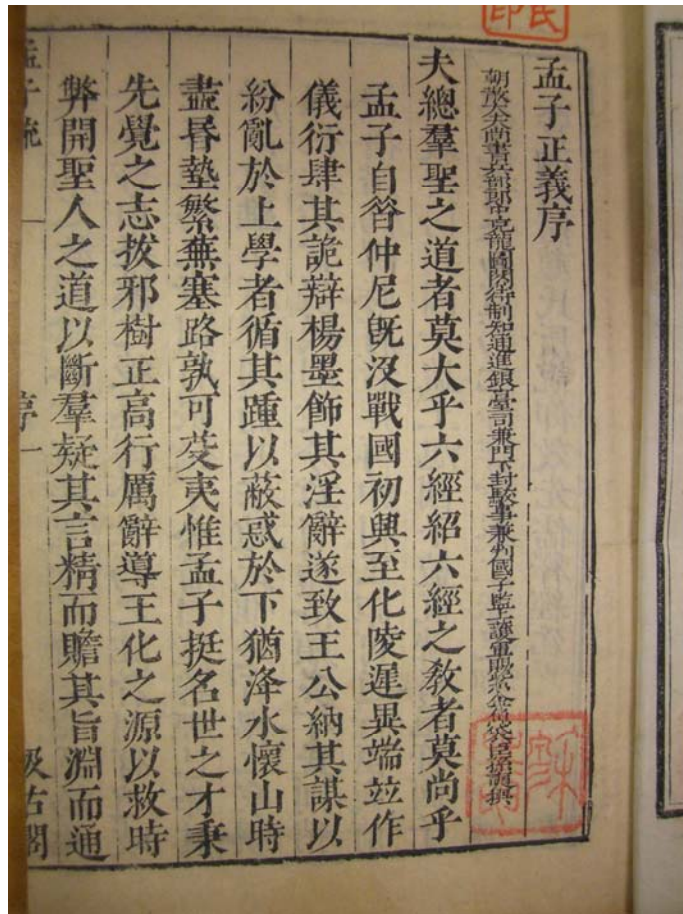 孟子正義序
朝散大夫尚書兵部郎中充龍圖閣待制知通進銀臺司兼門下封駁事兼判國子監上護軍賜紫金魚袋臣孫奭撰
夫總羣聖之道者莫大乎六經紹六經之敎者莫尚乎
孟子自㫺仲尼旣沒戰國初興至化陵遲異端竝作
儀衍肆其詭辯楊墨飾其淫辭遂致王公納其謀以
紛亂於上學者循其踵以蔽惑於下猶洚水懷山時
盡昬墊繁蕪塞路孰可芟夷惟孟子挺名世之才秉
先覺之志拔邪樹正高行厲辭導王化之源以救時
弊開聖人之道以斷羣疑其言精而贍其旨淵而通
孟子疏 序一 汲古閣